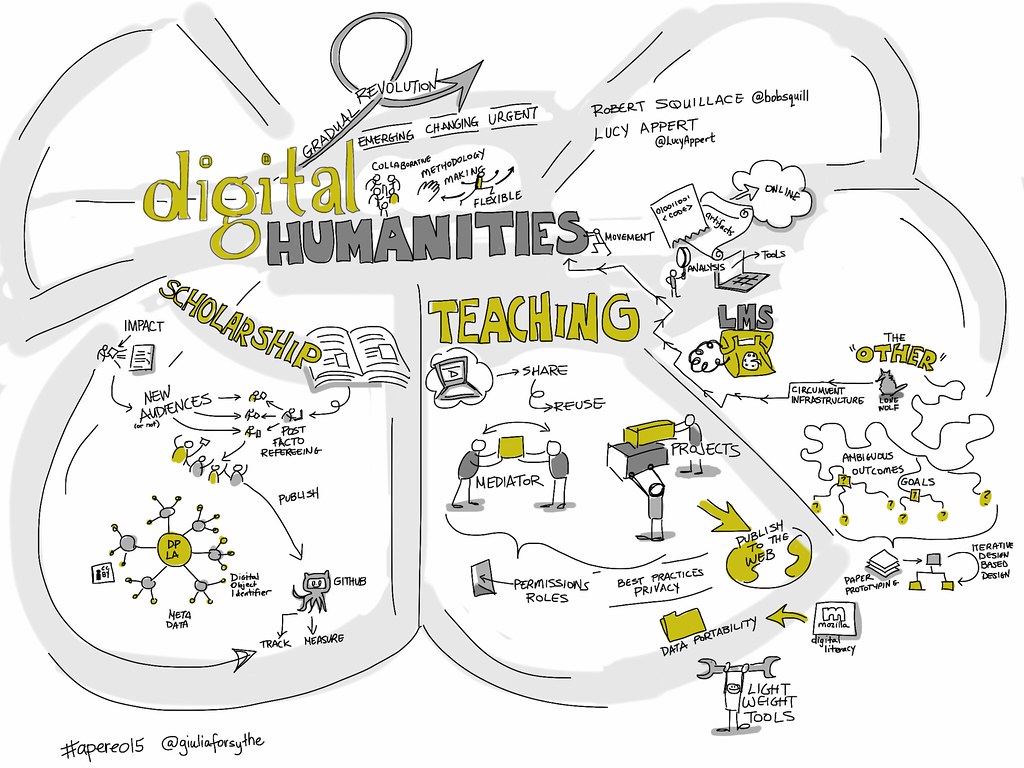 GRADUAL REVOLUTION
EMERGING CHANGING URGENT
ROBERT SQUILLACE @bobsquill
LUCY APPERT
@LucyAppert
digital
HUMANITIES
COLLABORATIVE
METHODOLOGY
MAKING
FLEXIBLE
MOVEMENT
01001001
<CODE>
artifacts
ONLINE
ANALYSIS
TOOLS
LMS
SCHOLARSHIP
IMPACT
NEW
AUDIENCES
(or not)
POST
FACTO
REFEREEING
PUBLISH
DP
LA
CC
BY
Digital
Object
Identifier
META
DATA
GITHUB
TRACK
MEASURE
TEACHING
SHARE
REUSE
MEDIATOR
PROJECTS
PUBLISH
TO THE
WEB
PERMISSIONS
ROLES
BEST PRACTICES
PRIVACY
DATA PORTABILITY
m
mozilla
digital
literacy
LIGHT
WEIGHT
TOOLS
THE
"OTHER"
LONE
WOLF
CIRCUMVENT
INFRASTRUCTURE
AMBIGUOUS
OUTCOMES
GOALS
? ? ? ? ? ? ?
PAPER
PROTOTYPING
ITERATIVE
DESIGN
BASED
DESIGN
#apereo15 @giuliaforsythe